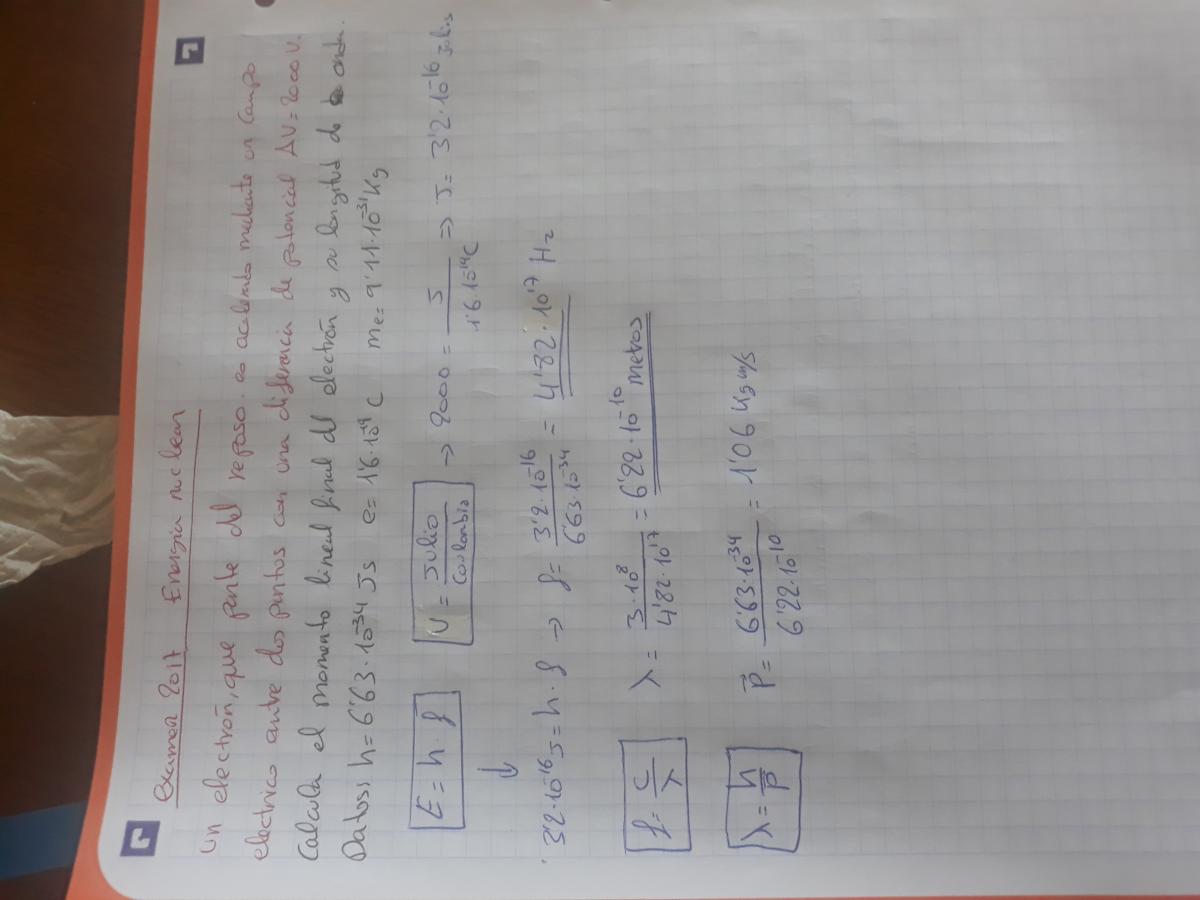 Examen 2017 Energía nuclear
Un electrón, que parte del reposo. es acelerado mediante un campo
electrico entre dos puntos con una diferencia de potencial ΔV = 2000 V.
Calcula el momento lineal final del electrón y su longitud de onda.
Datos: h = 6'63·10⁻³⁴ Js e = 1'6·10⁻¹⁹ C me = 9'11·10⁻³¹ Kg
E = h · f V = Julio / Coulombio → 2000 = J / 1'6·10⁻¹⁹C ⇒ J = 3'2·10⁻¹⁶ Julios
↓
3'2·10⁻¹⁶ J = h · f → f = 3'2·10⁻¹⁶ / 6'63·10⁻³⁴ = 4'82·10¹⁷ Hz
f = c / λ λ = 3·10⁸ / 4'82·10¹⁷ = 6'22·10⁻¹⁰ metros
λ = h / P P⃗ = 6'63·10⁻³⁴ / 6'22·10⁻¹⁰ = 1'06 Kg m/s